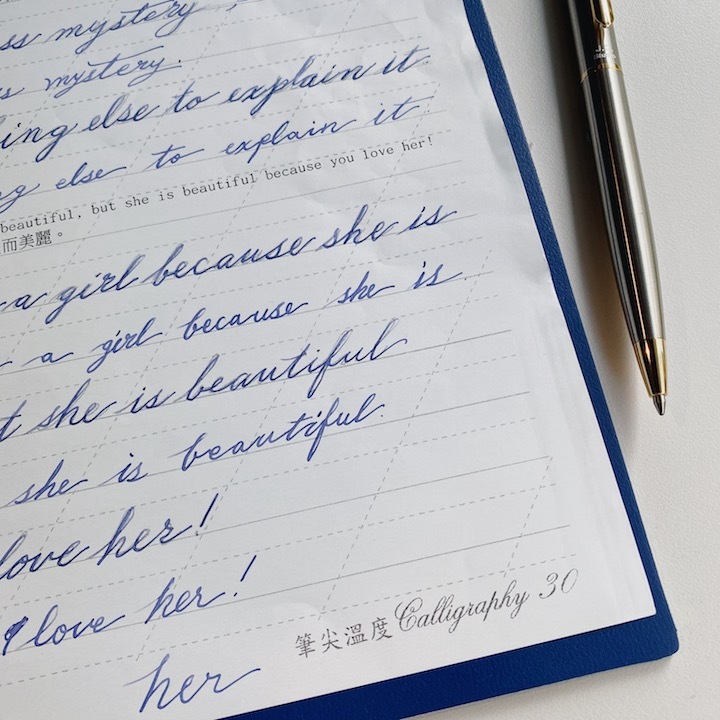 ss mystery
s mystery.
ing else to explain it
g else to explain it
beautiful, but she is beautiful because you love her!
而美麗。
a girl because she is
a girl because she is
t she is beautiful
she is beautiful
love her!
love her!
her
筆尖溫度 Calligraphy 30